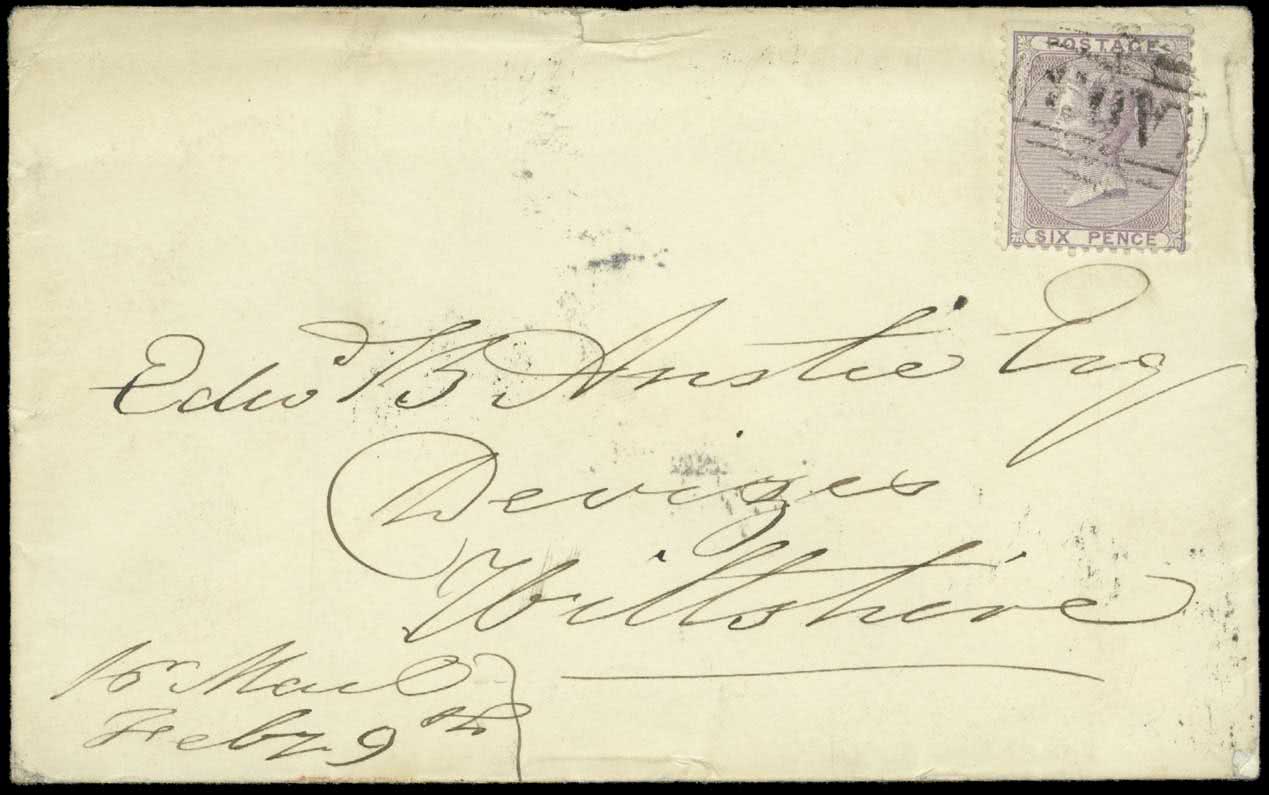 POSTAGE
SIX PENCE
Edwd B Anstie Esq
Devizes
Wiltshire
pr Mail
Feby 9th